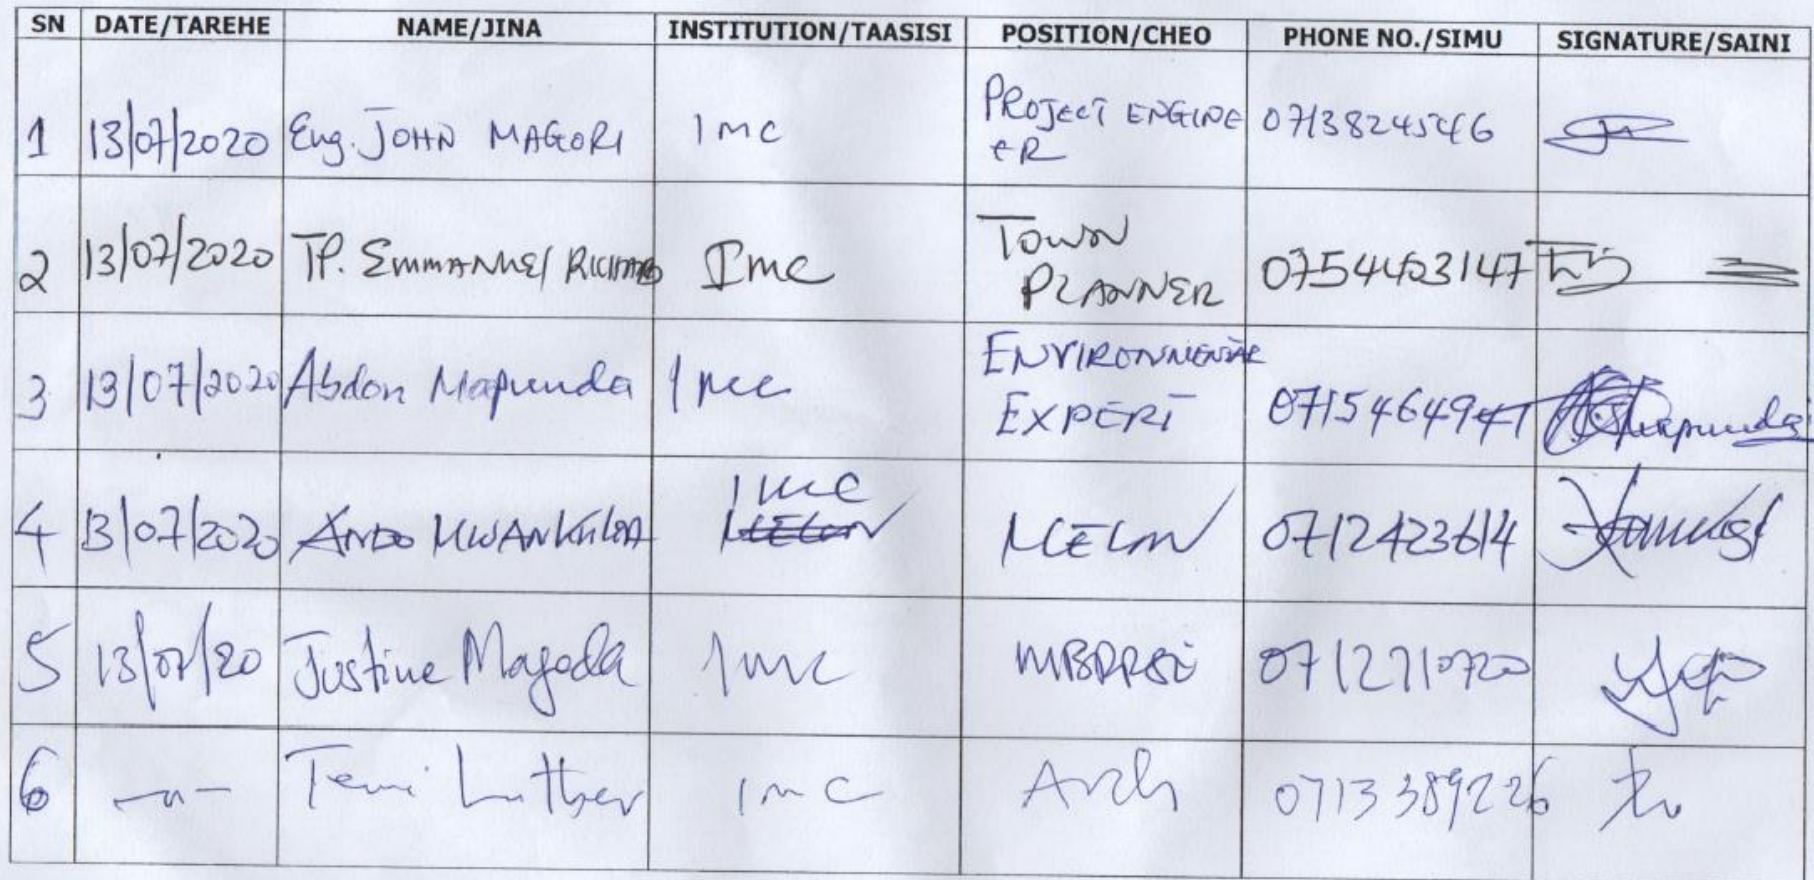 SN DATE/TAREHE NAME/JINA INSTITUTION/TAASISI POSITION/CHEO PHONE NO./SIMU SIGNATURE/SAINI
1 13/07/2020 Eng. JOHN MAGORI IMC PROJECT ENGINE 0713824546
ER
2 13/07/2020 TP. EMMANUEL RICHARD IMC TOWN 0754423147
PLANNER
3 13/07/2020 Abdon Mapunda IMC ENVIRONMENTAL
EXPERT 0715464947 Mapunda
IMC
4 13/07/2020 ANDO 0712423614
5 13/07/20 Justine IMC 0712710720
6 -"- Luther IMC Arch 0713389226